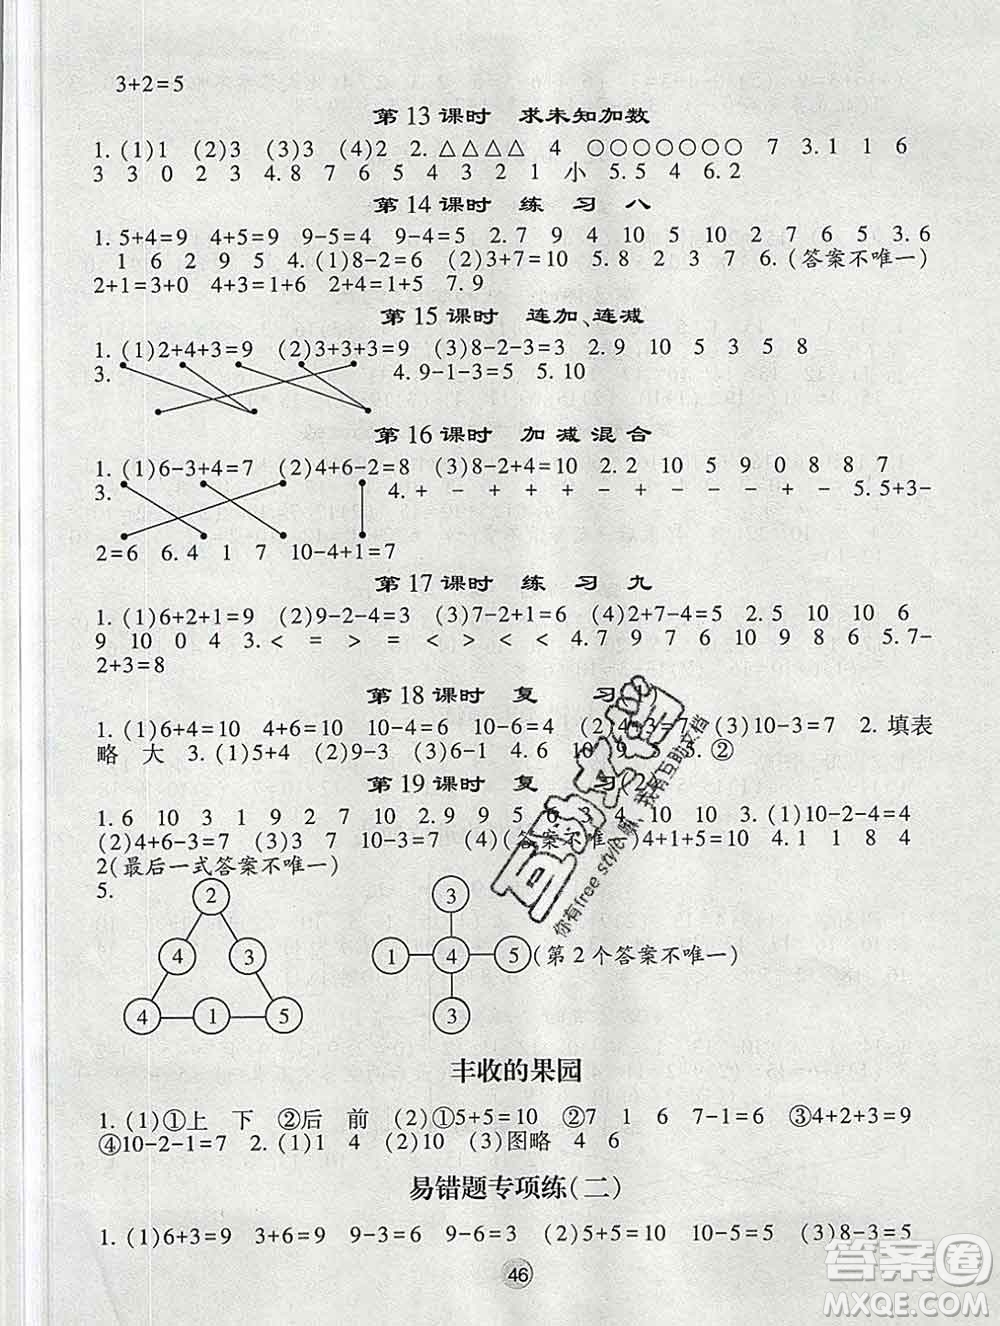 3+2=5
第13课时 求未知加数
1.(1)1 (2)3 (3)3 (4)2 2.△△△△ 4 ○○○○○○○ 7 3.1 1 6
3 3 0 2 3 4.8 7 6 5 4 3 2 1 小 5.5 4 6.2
第14课时 练 习 八
1.5+4=9 4+5=9 9-5=4 9-4=5 2.7 9 4 10 5 10 2 7 6 5 3.6
1 6 2 9 5 4.(1)8-2=6 (2)3+7=10 5.8 2 3 7 6.(答案不唯一)
2+1=3+0 4+3=1+6 2+4=1+5 7.9
第15课时 连加、连减
1.(1)2+4+3=9 (2)3+3+3=9 (3)8-2-3=3 2.9 10 5 3 5 8
3. 4.9-1-3=5 5.10
第16课时 加减混合
1.(1)6-3+4=7 (2)4+6-2=8 (3)8-2+4=10 2.2 10 5 9 0 8 8 7
3. 4.+ - + + - + - - - + - 5.5+3-
2=6 6.4 1 7 10-4+1=7
第17课时 练 习 九
1.(1)6+2+1=9 (2)9-2-4=3 (3)7-2+1=6 (4)2+7-4=5 2.5 10 10 6
9 10 0 4 3.< = > = < > < < 4.7 9 7 6 10 9 8 6 5.7-
2+3=8
第18课时 复 习
1.(1)6+4=10 4+6=10 10-4=6 10-6=4 (2)4+3=7 (3)10-3=7 2.填表
略 大 3.(1)5+4 (2)9-3 (3)6-1 4.6 10 9 5 5.②
第19课时 复 习
1.6 10 3 1 9 2 7 10 2.9 9 5 6 3 4 10 10 3.(1)10-2-4=4
(2)4+6-3=7 (3)3 7 10-3=7 (4)(答案不唯一)4+1+5=10 4.1 1 8 4
2(最后一式答案不唯一)
5.
2
4 3
4 1 5
3
1 4 5 (第2个答案不唯一)
3
丰收的果园
1.(1)①上 下 ②后 前 (2)①5+5=10 ②7 1 6 7-1=6 ③4+2+3=9
④10-2-1=7 2.(1)1 4 (2)10 (3)图略 4 6
易错题专项练(二)
1.(1)6+3=9 3+6=9 9-3=6 9-6=3 (2)5+5=10 10-5=5 (3)8-3=5
46
互助文档
你有free style,我有互助文档
答案圈
MXQE.COM